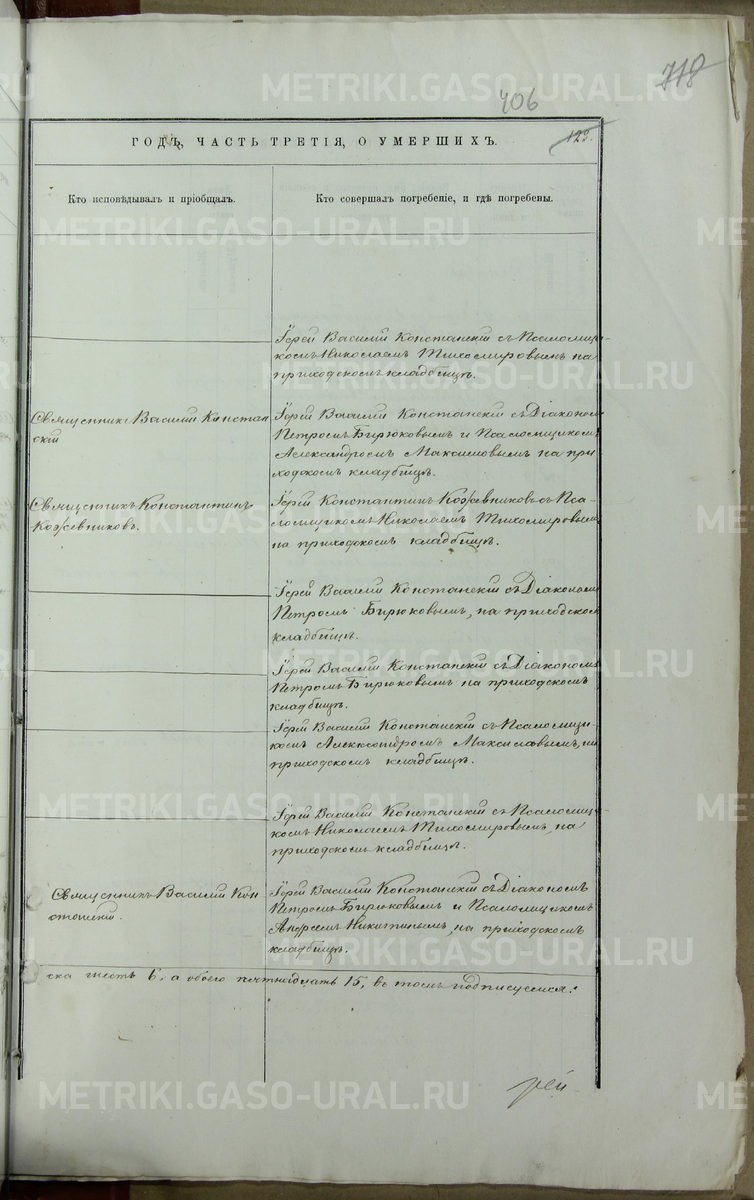 718
406
ГОДЪ, ЧАСТЬ ТРЕТІЯ, О УМЕРШИХЪ.
129.
Кто исповѣдывалъ и пріобщалъ.
Кто совершалъ погребеніе, и гдѣ погребены.
Іерей Василій Констанскій съ Псаломщи-
комъ Николаемъ Тихомировымъ на
приходскомъ кладбищѣ.
Священникъ Василій Констан
скій
Іерей Василій Констанскій съ Діакономъ
Петромъ Бирюковымъ и Псаломщикомъ
Александромъ Максимовымъ на при
ходскомъ кладбищѣ.
Священникъ Константинъ
Кожевниковъ.
Іерей Константинъ Кожевниковъ съ Пса-
ломщикомъ Николаемъ Тихомировымъ
на приходскомъ кладбищѣ.
Іерей Василій Констанскій съ Діакономъ
Петромъ Бирюковымъ, на приходскомъ
кладбищѣ.
Іерей Василій Констанскій съ Діакономъ
Петромъ Бирюковымъ на приходскомъ
кладбищѣ.
Іерей Василій Констанскій съ Псаломщи-
комъ Александромъ Максимовымъ, на
приходскомъ кладбищѣ.
Іерей Василій Констанскій съ Псаломщи-
комъ Николаемъ Тихомировымъ, на
приходскомъ кладбищѣ.
Священникъ Василій Кон
станскій.
Іерей Василій Констанскій съ Діакономъ
Петромъ Бирюковымъ и Псаломщикомъ
Андреемъ Никитинымъ, на приходскомъ
кладбищѣ.
ска шесть 6, а обоего пятнадцать 15, въ томъ подписуемся:
рей
METRIKI.GASO-URAL.RU